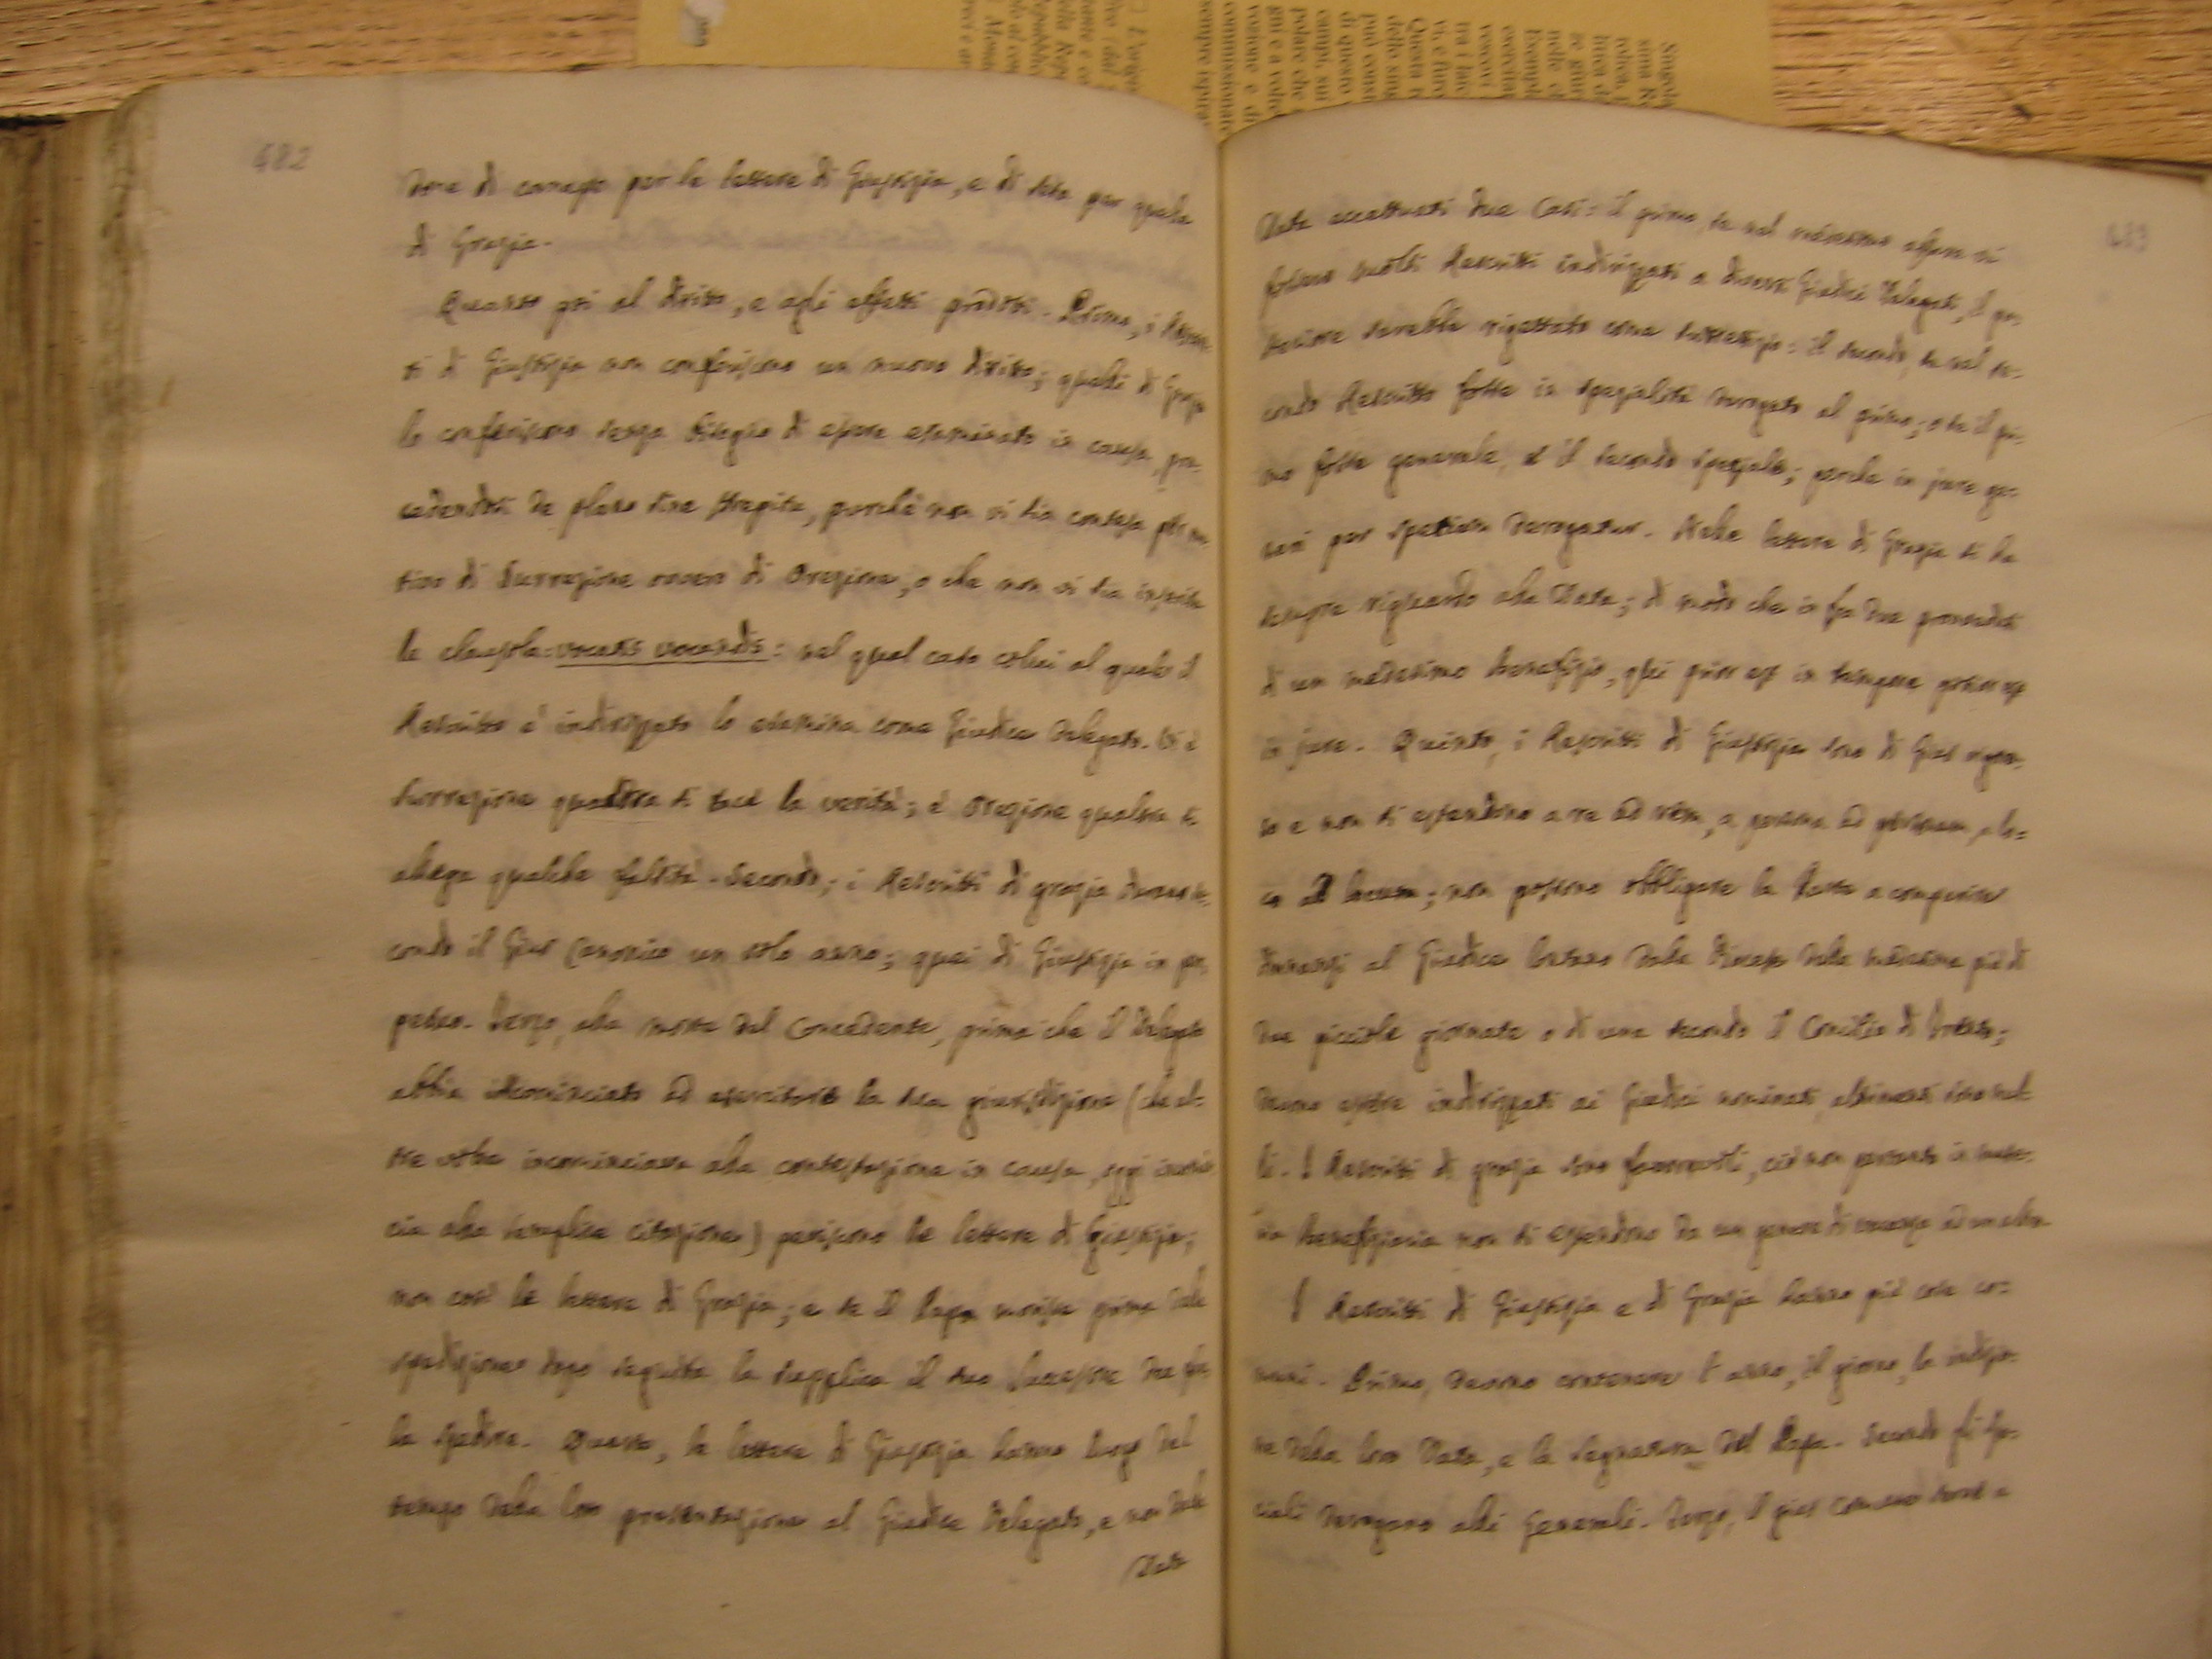 482
done di canapo per le lettere di Giustizia, e di seta per quele
di Grazia.
Quanto poi al diritto, e agli effetti prodotti. Primo, i Rescrit-
ti di Giustizia non conferiscono un nuovo diritto; quelli di Grazia
lo conferiscono senza bisogno di essere esaminato in causa, pro-
cedendosi de plano sine strepitu, purchè non vi sia contesa per mo-
tivo di Surrezione ovvero di Orezione, o che non vi sia inserita
la clausola: vocatis vocandis: nel qual caso colui al quale il
Rescritto è indirizzato lo esamina come Giudice Delegato. Vi è
Surrezione qualora si tace la verità; è Orezione qualora si
allega qualche falsità. Secondo; i Rescritti di grazia durano se-
condo il Gius Canonico un solo anno; quei di Giustizia in per-
petuo. Terzo, alla morte del Concedente, prima che il Delegato
abbia incominciato ad esercitare la sua giurisdizione (che al-
tre volte incominciava alla contestazione in causa, oggi incomin
cia alla semplice citazione) periscono le lettere di Giustizia;
non così le lettere di Grazia; e se il Papa morisse prima dele
spedizione dopo seguita la supplica il suo Successore dee far
la spedire. Quarto, le lettere di Giustizia hanno luogo del
tempo della loro presentazione al Giudice Delegato, e non dele
Data
483
Data eccettuati due casi: il primo, se nel medesimo affare vi
fossero molti Rescritti indirizzati a diversi Giudici Delegati, il pos-
teriore sarebbe rigettato come surretizio: il secondo, se nel se-
condo Rescritto fosse in spezialità derogato al primo; o se il pri-
mo fosse generale, et il secondo speziale; perchè in jure ge-
neri per speciem derogatur. Nelle lettere di Grazia si ha
sempre riguardo alla Data; di modo che in fra due provveduti
di un medesimo benefizio, qui prior est in tempore potior est
in jure. Quinto, i Rescritti di Giustizia sono di Gius rigoro-
so e non si estendono a re ad rem, a persona ad personam, a lo-
co ad locum; non possono obbligare la Parte a comparire
dinnanzi al Giudice lontano dalla Diocesi della medesima più di
due picciole giornate o di una secondo il Concilio di Trento;
devono essere indirizzati ai Giudici nominati, altrimenti sono nul-
li. I Rescritti di grazia sono favorevoli, ciò non pertanto in mate-
ria benefiziaria non si estendono da un genere di vacanza ad un altro
I Rescritti di Giustizia e di Grazia hanno più cose co-
muni. Primo, devono contenere l'anno, il giorno, la indizio-
ne della loro Data, e la Segnatura del Papa. Secondo gli Spe-
ciali derogano alli Generali. Terzo, il gius comune serve a